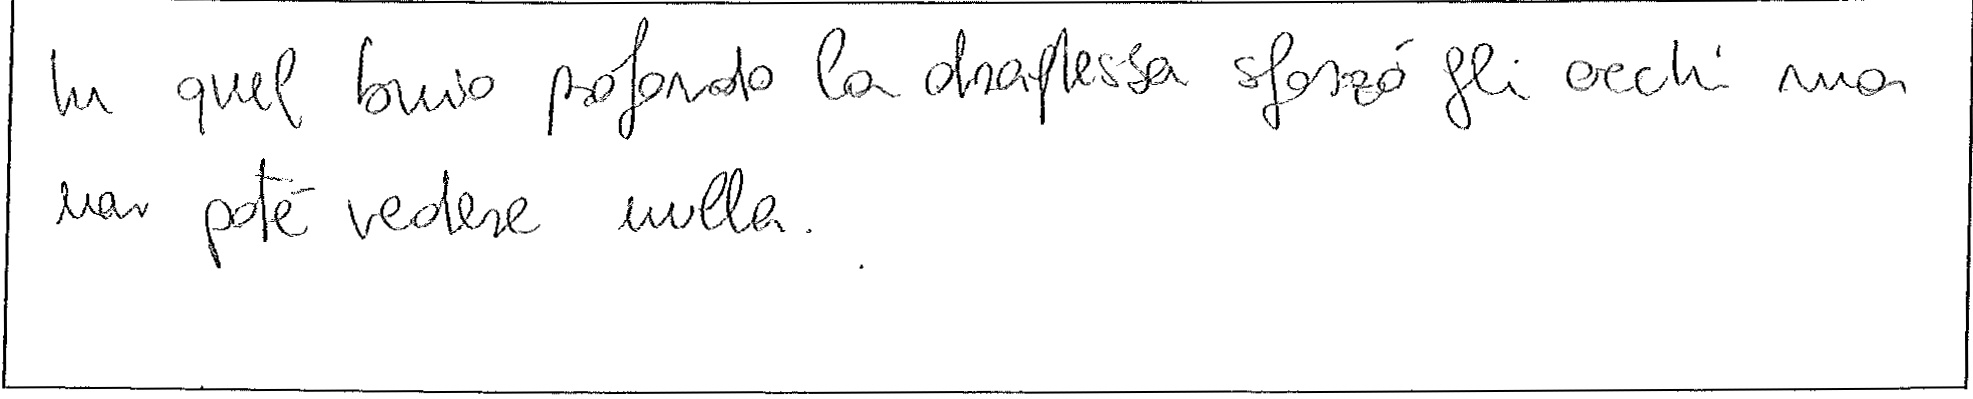 In quel buio profondo la draghessa sforzó gli occhi ma
non poté vedere nulla.